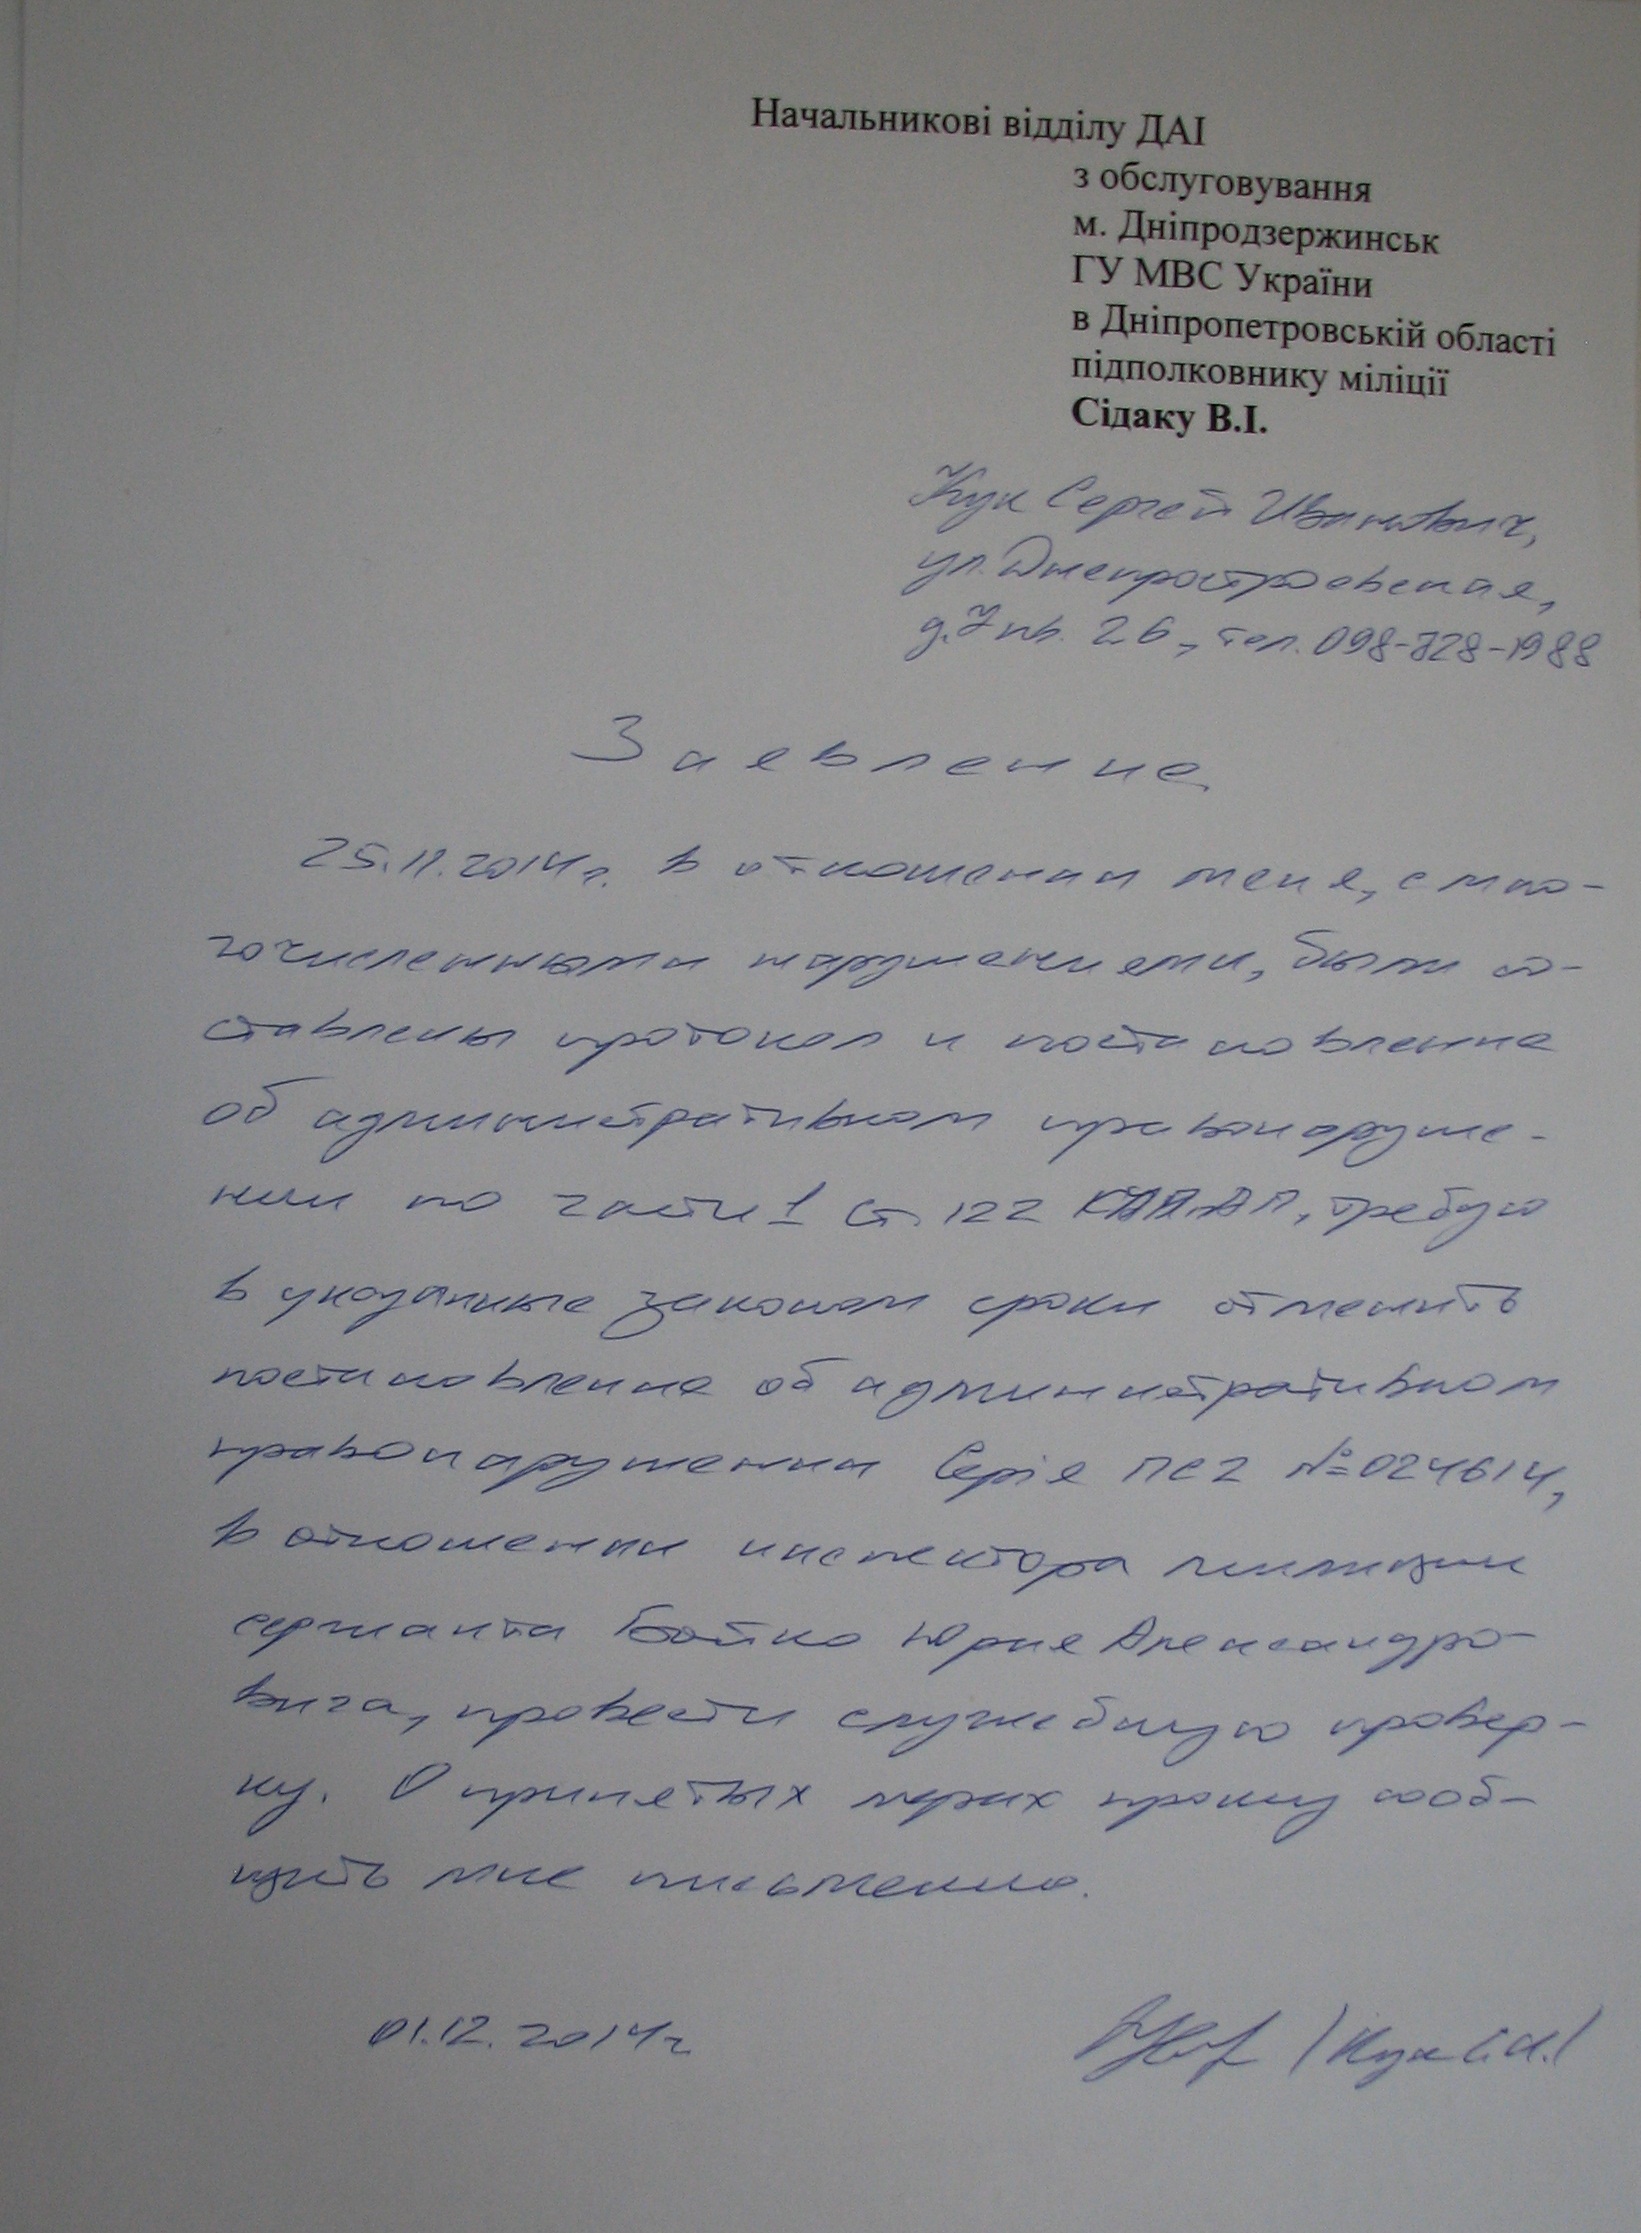 Начальникові відділу ДАІ
з обслуговування
м. Дніпродзержинськ
ГУ МВС України
в Дніпропетровській області
підполковнику міліції
Сідаку В.І.
Кук Сергей Иванович,
ул. Днепростроевская,
д.7 кв. 26, тел. 098-728-1988
Заявление
25.11.2014г. в отношении меня, с мно-
гочисленными нарушениями, были со-
ставлены протокол и постановление
об административном правонаруше-
нии по части 1 ст. 122 требую
в указанные законом сроки отменить
постановление об административном
правонарушении Серія ПС2 №024614,
в отношении инспектора милиции
сержанта Бойко Юрия Александро-
вича, провести служебную провер-
ку. О принятых мерах прошу сооб-
щить мне письменно.
01.12.2014г
/Кук С.И./